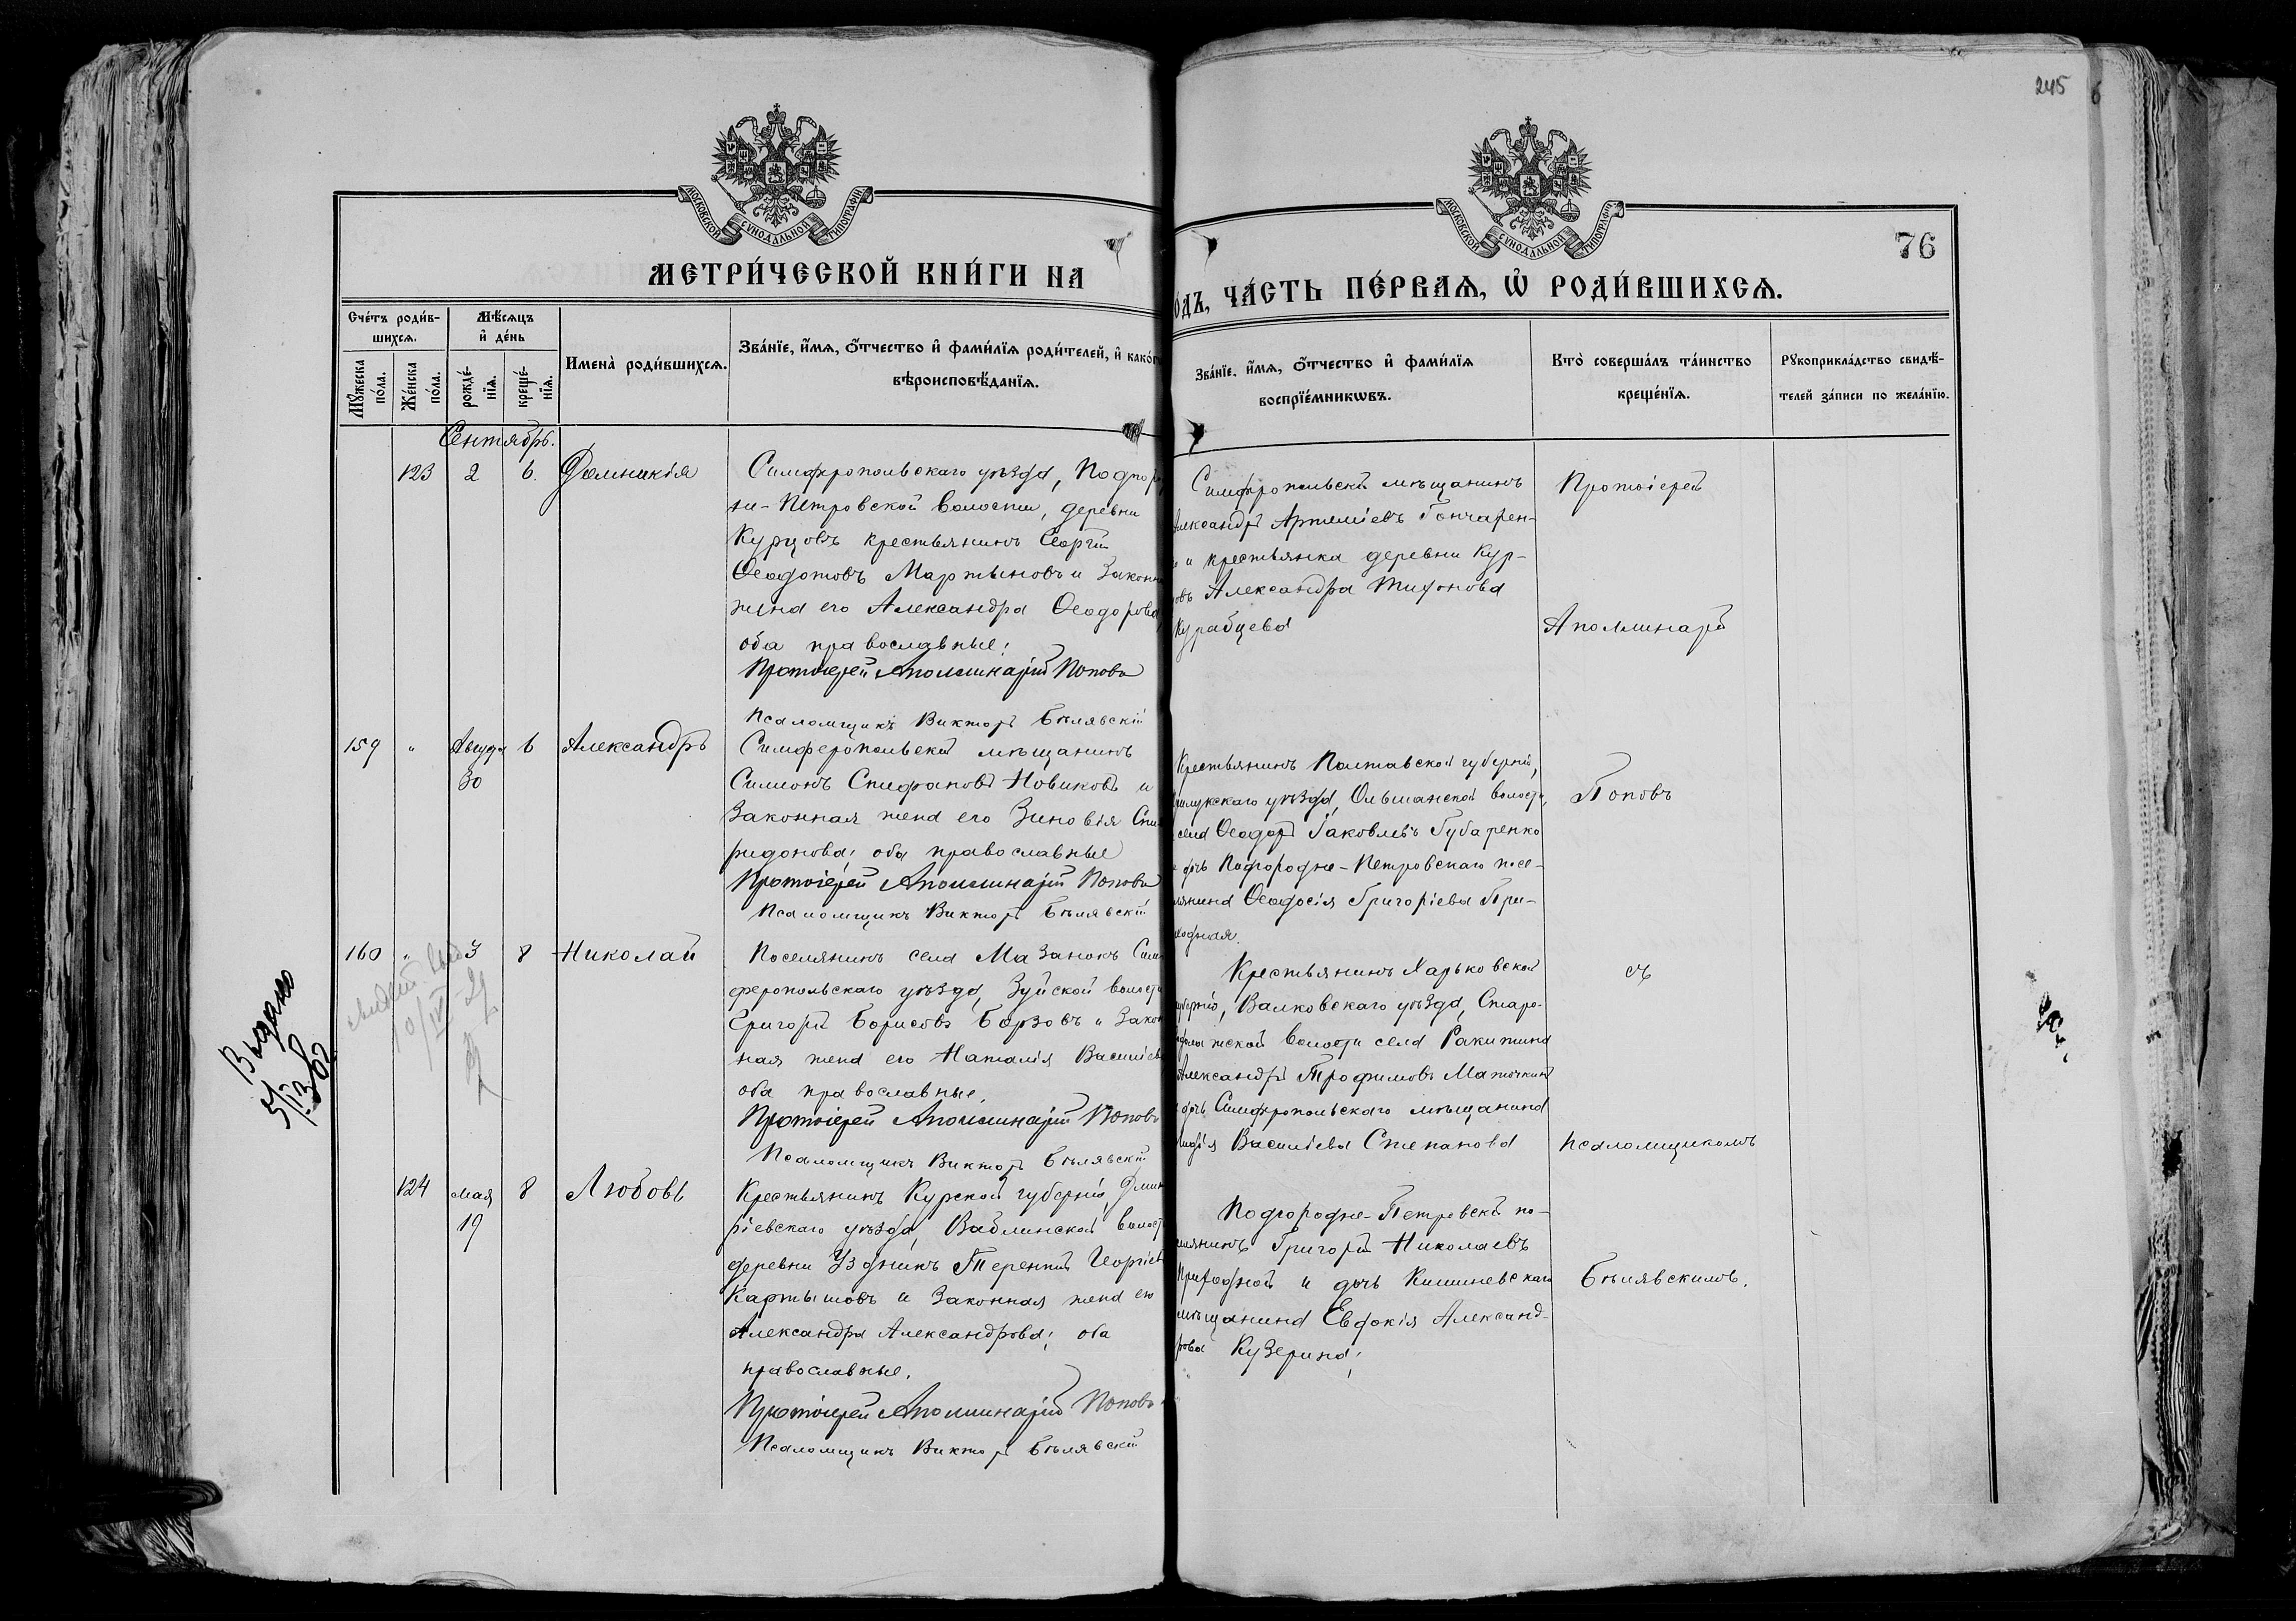 245
МОСКОВСКОЙ СУНОДАЛЬНОЙ ТИПОГРАФІИ
МОСКОВСКОЙ СУНОДАЛЬНОЙ ТИПОГРАФІИ
76
МЕТРИ́ЧЕСКОЙ КНИ́ГИ НА
ОДЪ, ЧА́СТЬ ПЕ́РВАѦ, Ѡ҆ РОДИ́ВШИХСѦ.
Сче́тъ роди́в-
шихсѧ.
Мѣ́сѧцъ
и҆ де́нь
Мꙋ́жеска
по́ла.
Же́нска
по́ла.
рожде́-
нїѧ.
креще́-
нїѧ.
Имена̀ роди́вшихсѧ.
Зва́нїе, и҆́мѧ, ѻ҆́тчество и҆ фами́лїѧ роди́телей, и҆ како́г
вѣроисповѣ́данїѧ.
Зва́нїе, и҆́мѧ, ѻ҆́тчество и҆ фами́лїѧ
воспрїе́мникѡвъ.
Кто̀ соверша́лъ та́инство
креще́нїѧ.
Рꙋкоприкла́дство свидѣ́-
телей за́писи по жела́нїю.
Сентябрь.
123 2 6. Домникія
Симферопольскаго уѣзда, Подгор
не-Петровской волости, деревни
Курцовъ крестьянинъ Георгій
Ѳеодотовъ Мартыновъ и законн
жена его Александра Ѳеодорова
оба православные;
Протоіерей Аполлинарій Поповъ
Псаломщикъ Викторъ Бѣлявскій
Симферопольскій мѣщанинъ
Александръ Артеміевъ Гончарен-
о и крестьянка деревни Кур-
овъ Александра Тихонова
Курабцева
Протоіерей
Аполлинарій
159 " Августа 30 6 Александръ
Симферопольскій мѣщанинъ
Симеонъ Стефановъ Новиковъ и
законная жена его Зиновія Спи
ридонова; оба православные
Протоіерей Аполлинарій Поповъ
Псаломщикъ Викторъ Бѣлявскій
Крестьянинъ Полтавской губерніи,
рилукскаго уѣзда, Ольшанской волости,
села Ѳеодоръ Іаковлевъ Губаренко
и дочь Подгородне-Петровскаго посе-
лянина Ѳеодосія Григоріева При-
ходная.
Поповъ
160 " 3 8 Николай
Поселянинъ села Мазанокъ Сим
феропольскаго уѣзда, Зуйской волости
Григорій Борисовъ Борзовъ и закон
ная жена его Наталія Василіева
оба православные,
Протоіерей Аполлинарій Поповъ
Псаломщикъ Викторъ Бѣлявскій
Крестьянинъ Харьковской
губерніи, Валковскаго уѣзда, Старо-
волости села Ракитина
Александръ Трофимовъ
и дочь Симферопольскаго мѣщанина
Василіева Степанова
съ
псаломщикомъ
Выдано
124 мая 19 8 Любовь
Крестьянинъ Курской губерніи, Дмит
ріевскаго уѣзда, Ваблинской волост
деревни Уздникъ Терентій Георгіевъ
Картышовъ и законная жена его
Александра Александрова; оба
православные.
Протоіерей Аполлинарій Поповъ
Псаломщикъ Викторъ Бѣлявскій
Подгородне-Петровскій по-
селянинъ Григорій Николаевъ
Приходной и дочь Кишиневскаго
мѣщанина Евдокія Александ-
рова Кузерина;
Бѣлявскимъ.